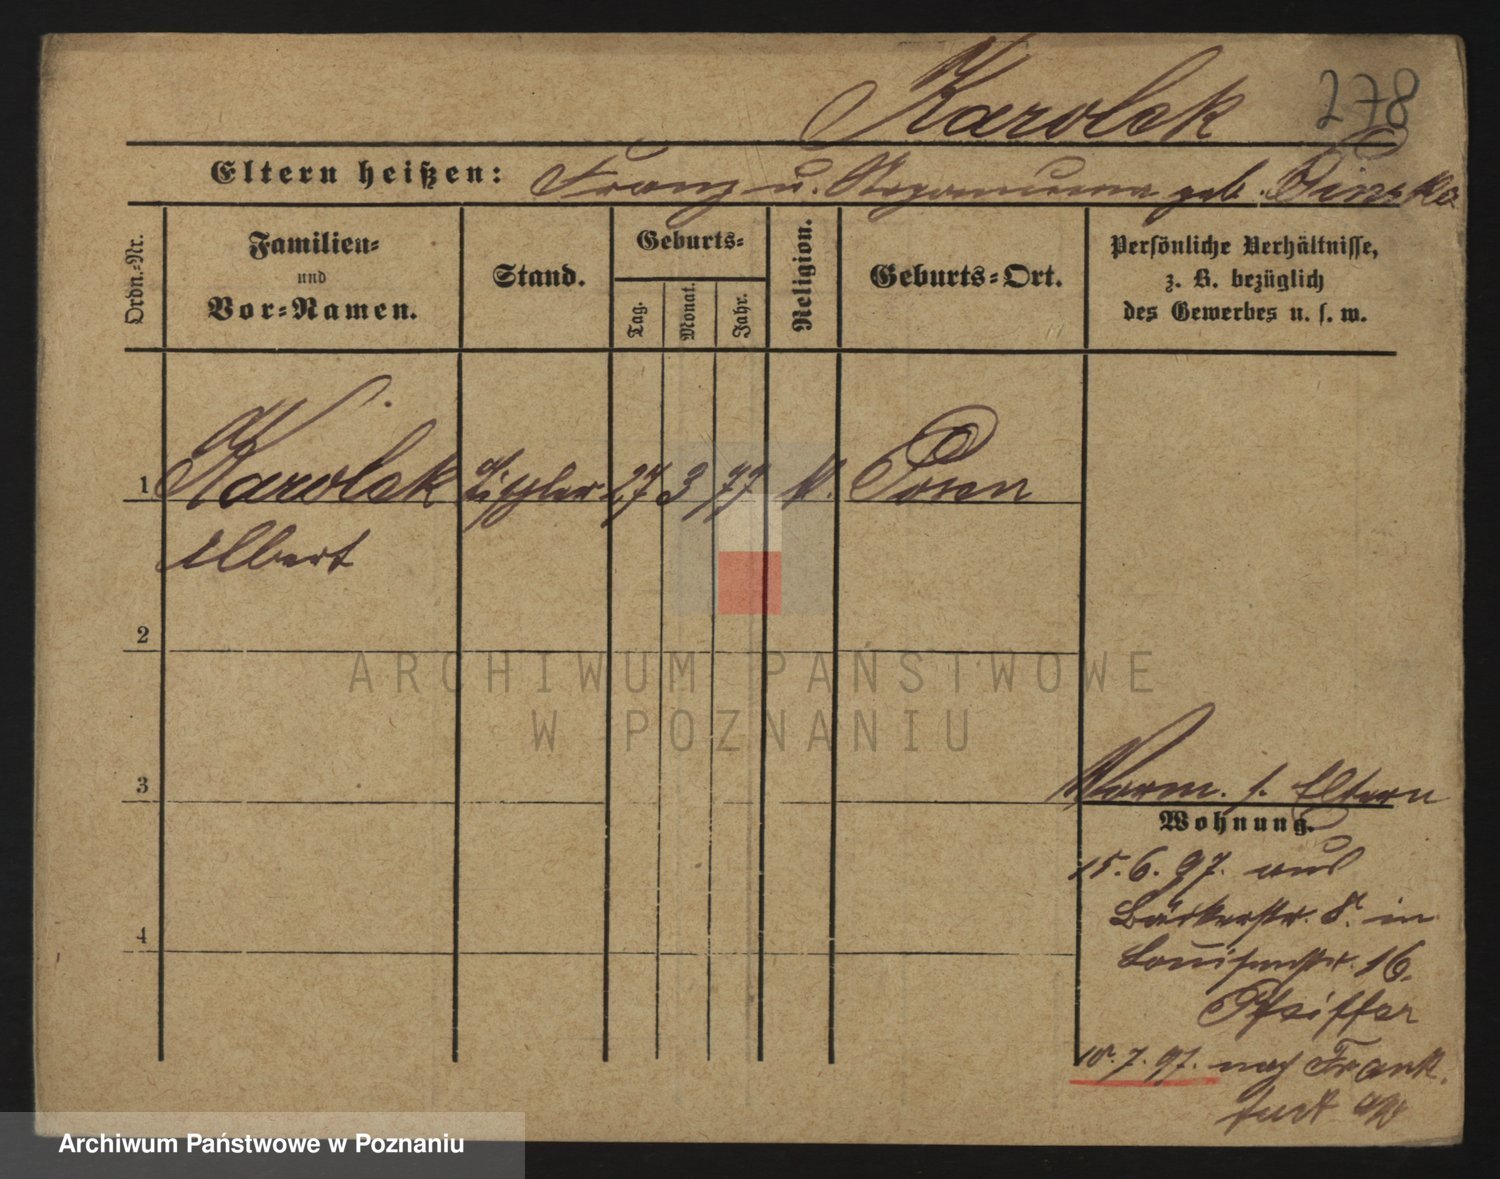 Karolek
278
Eltern heißen: Franz u. geb. Pinska
Ordn.-Nr.
Familien-
und
Vor-Namen.
Stand.
Geburts-
Tag.
Monat.
Jahr.
Religion.
Geburts-Ort.
Persönliche Verhältnisse,
z. B. bezüglich
des Gewerbes u. s. w.
1 Karolek Tischler 27 3 77 k. Posen
Albert
2
ARCHIWUM PAŃSTWOWE
W POZNANIU
3
Vorm. s. Eltern
Wohnung.
15.6.97. aus
Bäckerstr. 8. in
4
Louisenstr. 16.
Pfeiffer
10.7.97. nach Frank
furt a/O
Archiwum Państwowe w Poznaniu